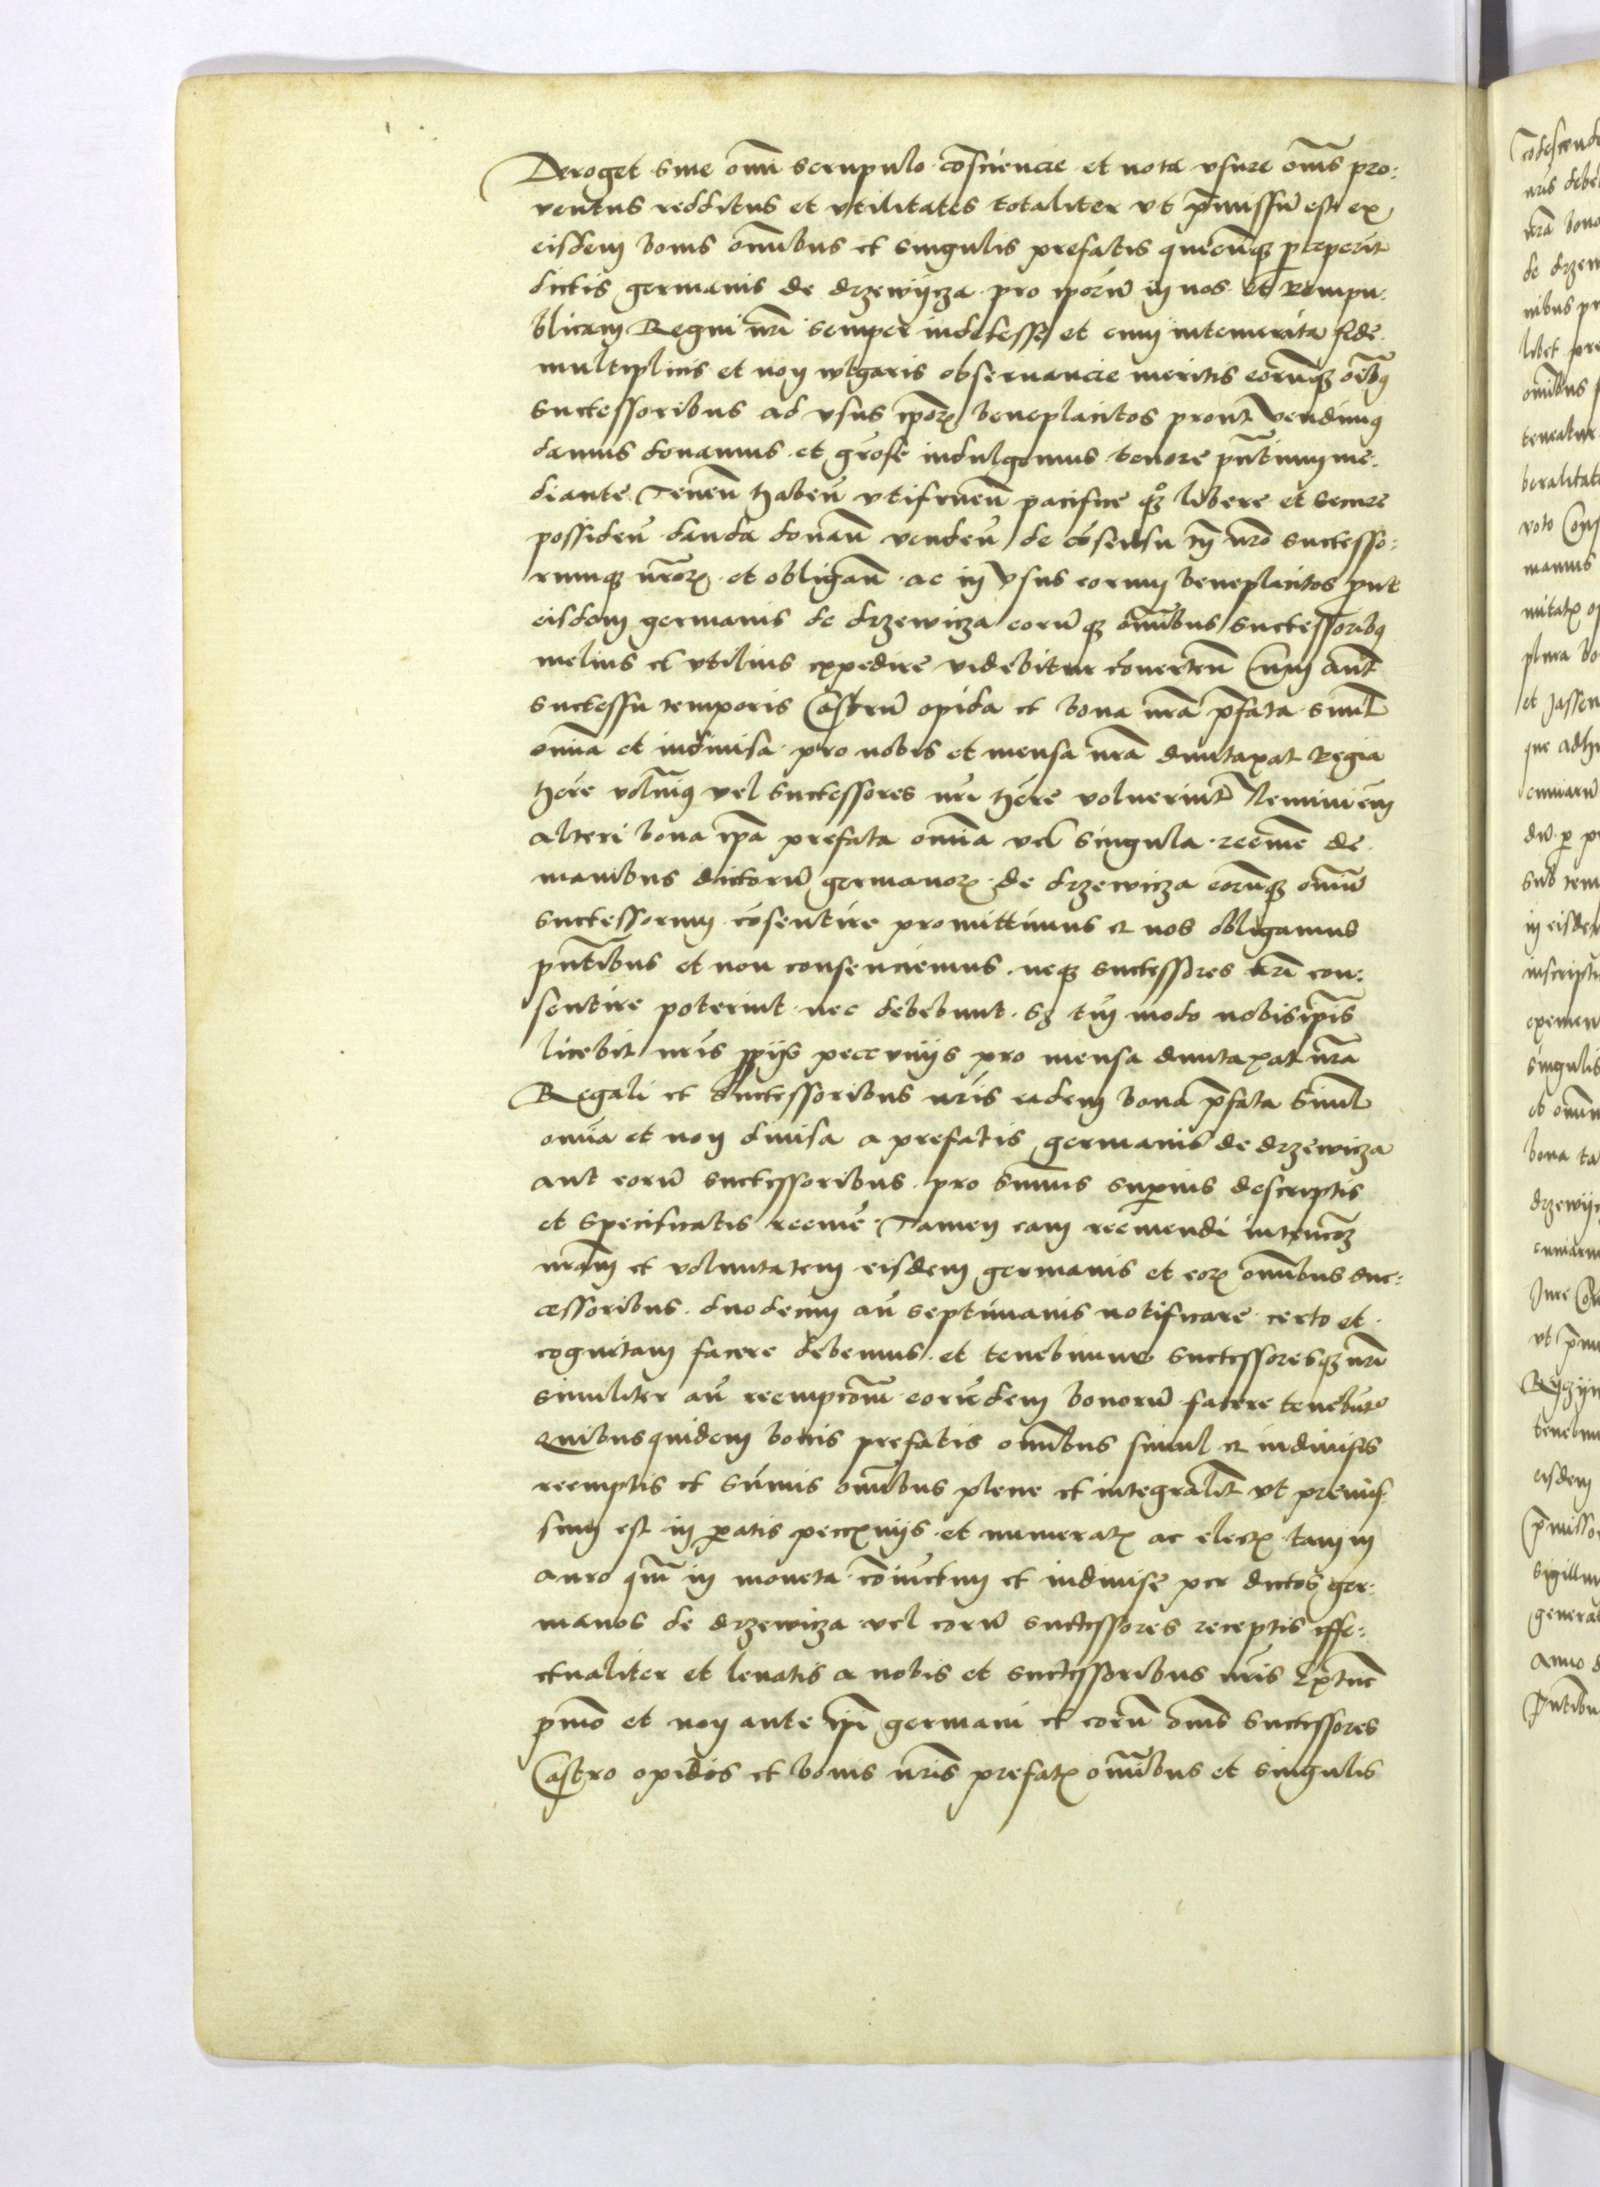 Deroget sine om̄i scrupulo cōsciencie et nota vsure om̄s pro:
uentus redditus et vtilitates totaliter vt p̄missū est ex
eisdem bonis om̄ibus et singulis prefatis
dictis germanis de drzewijcza pro ip̄orū in nos et Rempu:
blicam Regni nr̄i semper indefesse et cum intemerata fide
multiplicis et non wlgaris obseruancie meritis eorūqȝ om̄ibꝫ
successoribus ad vsus ip̄oꝝ beneplacitos prout vendimꝰ
damus donamus et gr̄ose indulgemus tenore pn̄tium me:
diante Tenen̄ haben̄ vtifruen̄ pacifice qȝ libere et secure
possiden̄ danda donan̄ venden̄ de cōsensu tn̄ nr̄o successo:
rumqȝ nr̄oꝝ et obligan̄ ac in vsus eorum beneplacitos put
eisdem germanis de drzewicza eorūqȝ om̄ibus successoribꝫ
melius et vtilius expedire videbitur cōuerten̄ Cum aut̄
successu temporis Castrū opida et bona nr̄a p̄fata simul
om̄ia et indiuisa pro nobis et mensa nr̄a dumtaxat Regia
hēre volum̄ꝰ vel successores nr̄i hēre voluerint Nemini em̄
alteri bona ip̄a prefata om̄ia vel singula reeme de
manibus dictorū germanoꝝ de drzewicza eorūqȝ om̄iū
successorum cōsentire promittimus et nos obligamus
pn̄tibus et non consenciemus neqȝ successores nr̄i con:
sentire poterint nec debebunt sȝ tm̄ modo nobis ip̄is
licebit nr̄is ꝓpijs peccunijs pro mensa dumtaxat nr̄a
Regali et successoribus nr̄is eadem bona p̄fata simul
om̄ia et non diuisa a prefatis germanis de drzewicza
aut eorū successoribus pro sum̄is superius descriptis
et specificatis reemē Tamen eam reemendi intencōȝ
nr̄am et voluntatem eisdem germanis et eoꝝ om̄ibus suc:
cessoribus duodecim an̄ septimanis notificare certo et
cognitam facere debemus et tenebimur successoresqȝ nr̄i
similiter an̄ reempcōm̄ eorūdem bonorū facere tenebūt
Quibusquidem bonis prefatis om̄ibus simul et indiuisis
reemptis et sūmis om̄ibus plene et integralit̄ vt premis
sum est in paratis peccunijs et numeratꝭ ac electꝭ tam in
auro qm̄ in moneta cōiūctim et indiuise per dictos ger:
manos de drzewicza vel eorū successores receptis effe:
ctualiter et leuatis a nobis et successoribus nr̄is extunc
pmo et non ante ip̄i germani et eorū om̄s successores
Castro opidis et bonis nr̄is prefatꝭ om̄ibus et singulis